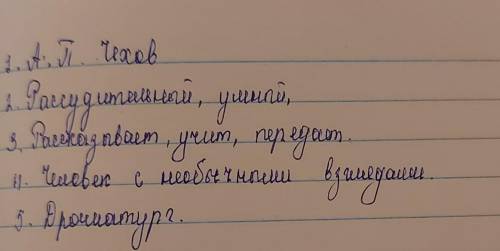 1. А. П. Чехов
2. Рассудительный, умный,
3. Рассказывает, учит, передаёт.
4. Человек с необычными взглядами.
5. Драматург.